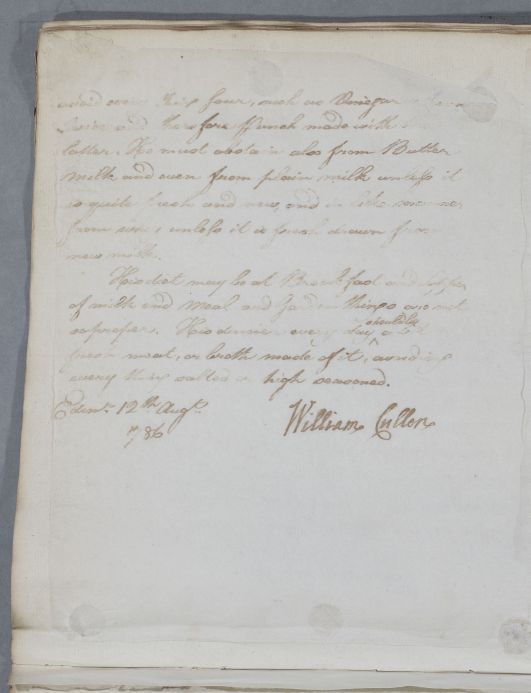 avoid every thing sour, such as Vinegar
Juice and therefore Punch made with the
latter. He must abstain also from Butter
Milk and even from plain milk unless it
is quite fresh and new, and in like manner
from unless it is fresh drawn from
new milk.
His diet may be at Breakfast and Supper
of milk and Meal and Garden things are not
so proper. His dinner every day should be
fresh meat, or broth made of it, avoiding
every thing salted or high seasoned.
Edinr. 12th Augt.
1786
William Cullen